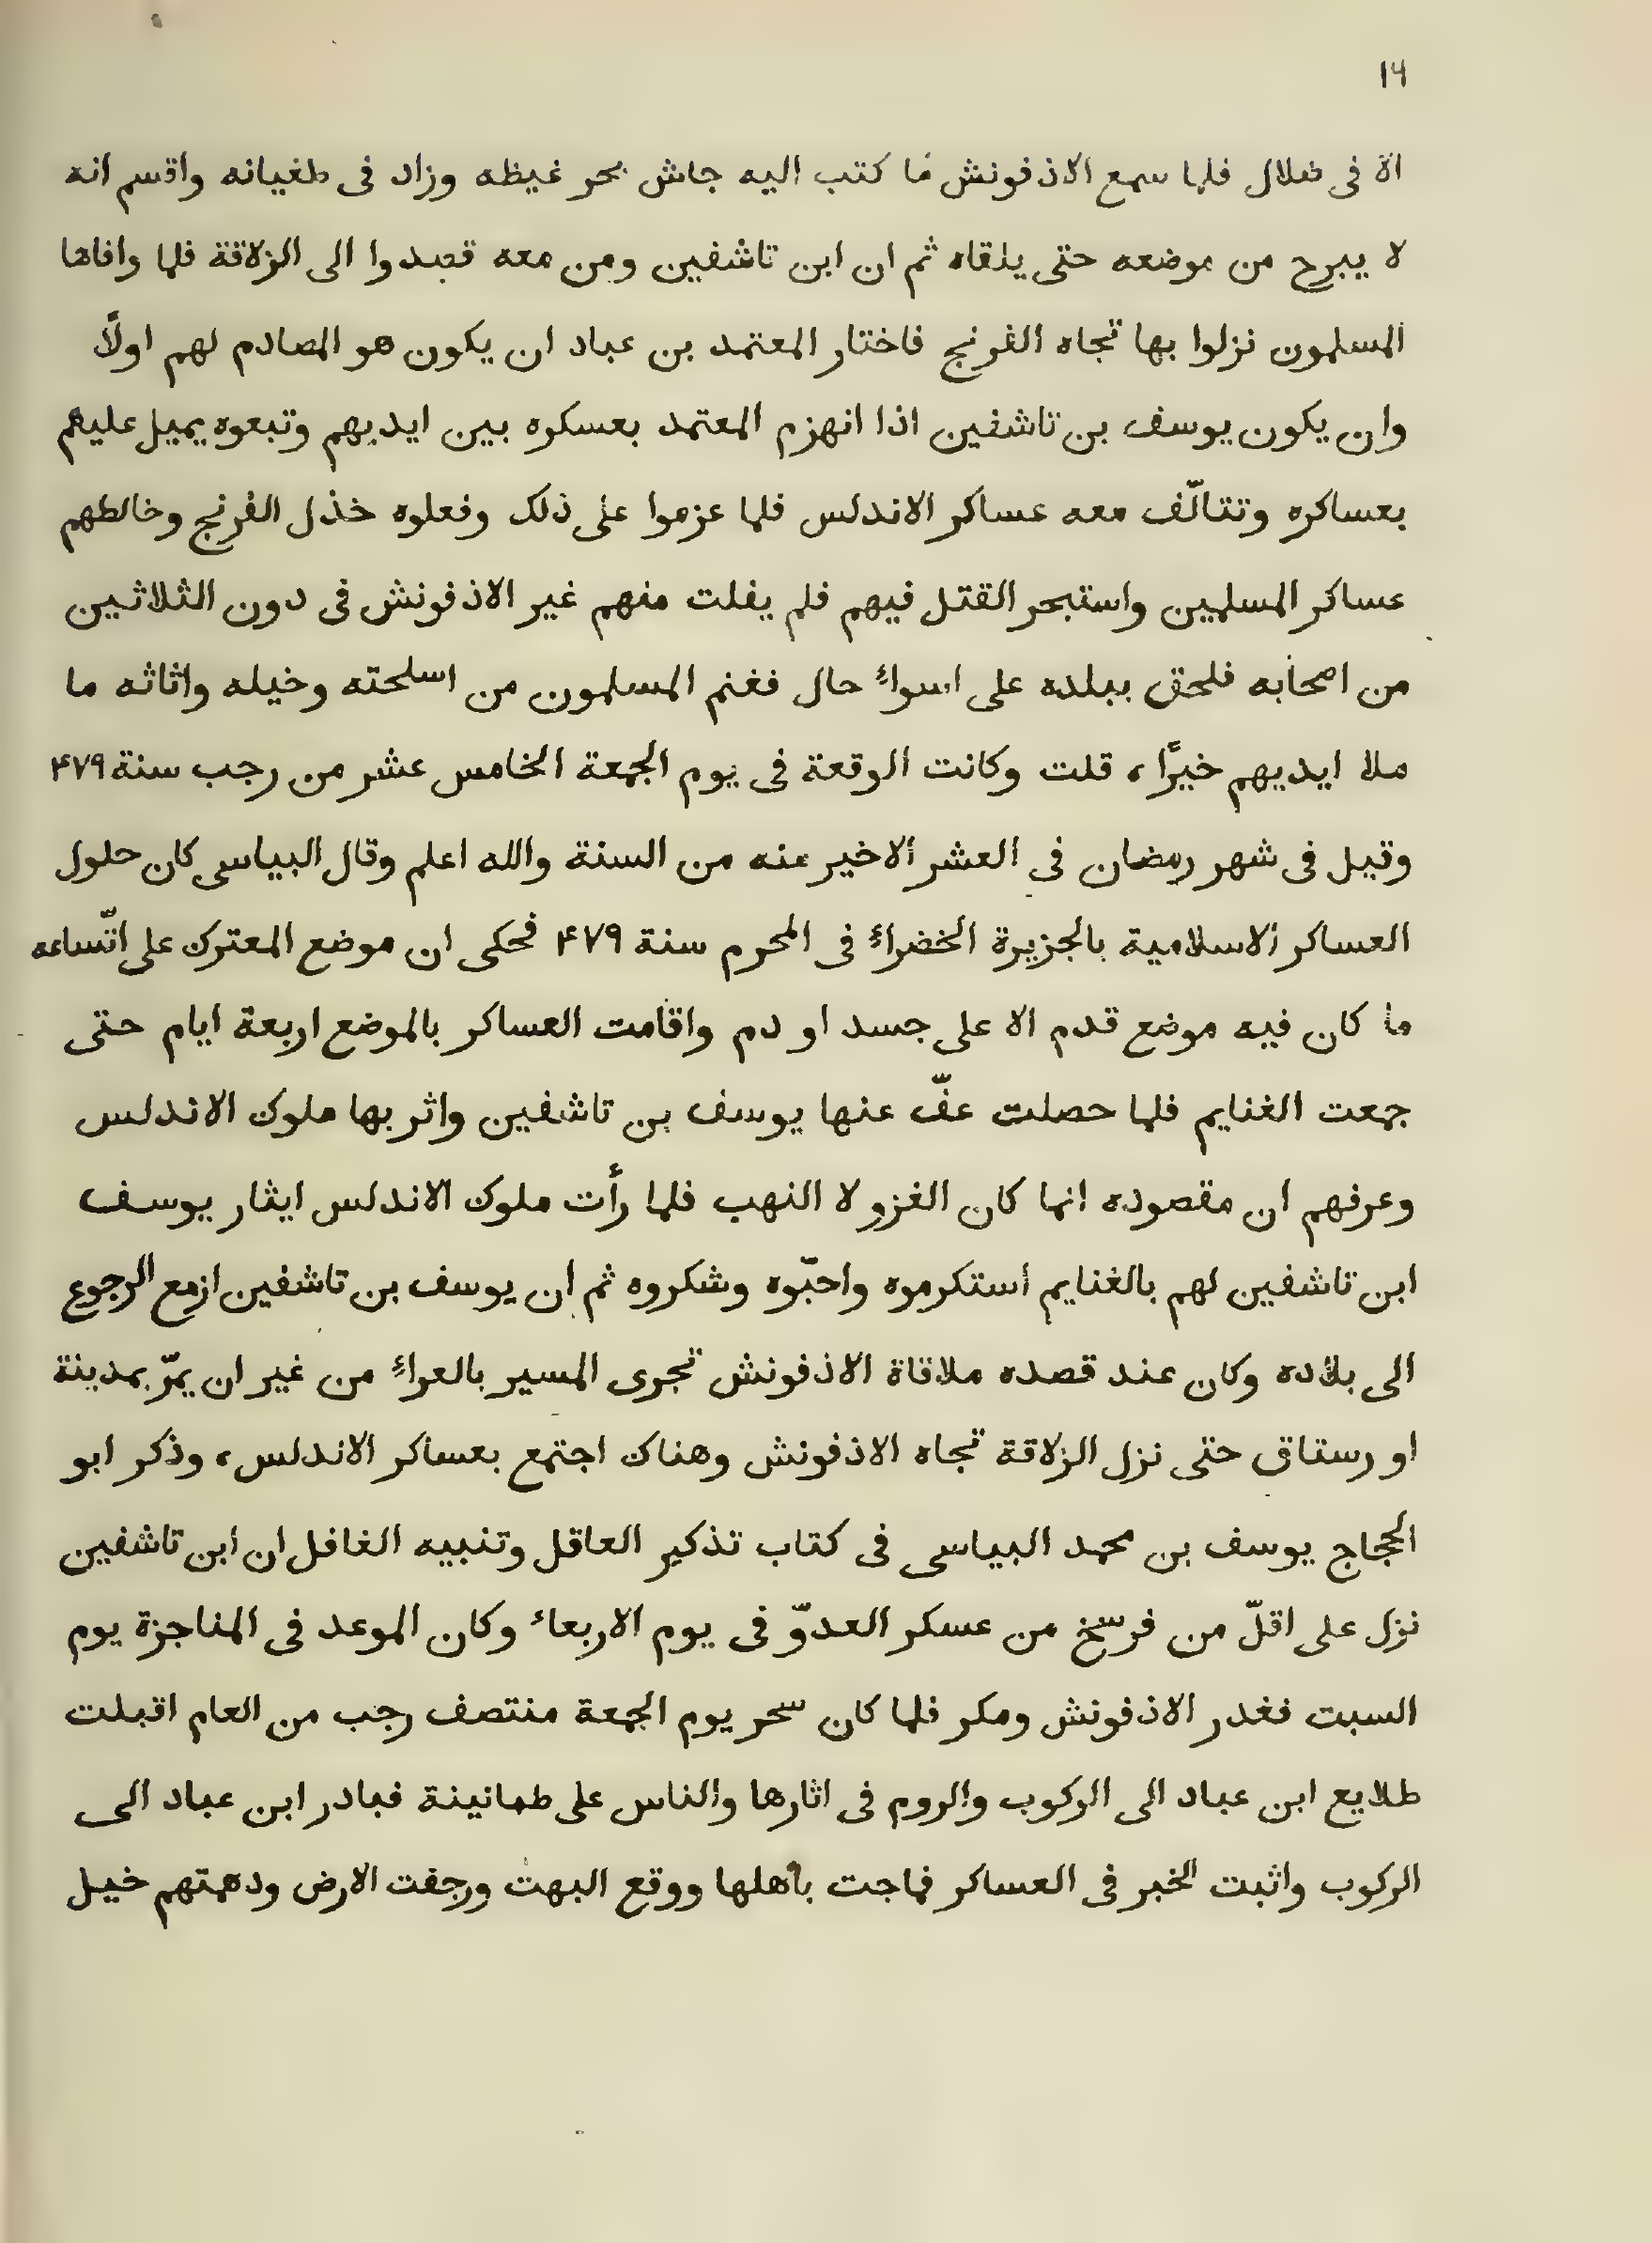 ١٦
الا فى ضلال فلما سمع الاذفونش ما كتب اليه جاش بحر غيظه وزاد فى طغيانه واقسم انه
لا يبرح من موضعه حتى يلقاه ثم ان ابن تاشفين ومن معه قصدوا الى الزلاقة فلما وافاها
المسلمون نزلوا بها تجاه الفرنج فاختار المعتمد بن عباد ان يكون هو المصادم لهم اولًا
وان يكون يوسف بن تاشفين اذا انهزم المعتمد بعسكره بين ايديهم وتبعوه يميل عليهم
بعساكره وتتالّف معه عساكر الاندلس فلما عزموا على ذلك وفعلوه خذل الفرنج وخالطهم
عساكر المسلمين واستبحر القتل فيهم فلم يفلت منهم غير الاذفونش فى دون الثلاثين
من اصحابه فلحق ببلده على اسواء حال فغنم المسلمون من اسلحته وخيله واثاثه ما
ملا ايديهم خيرًا، قلت وكانت الوقعة فى يوم الجمعة الخامس عشر من رجب سنة ۴۷۹
وقيل فى شهر رمضان فى العشر الاخير منه من السنة والله اعلم وقال البياسى كان حلول
العساكر الاسلامية بالجزيرة الخضراء فى المحرم سنة ۴۷۹ فحكى ان موضع المعترك على اتّساعه
ما كان فيه موضع قدم الا على جسد او دم واقامت العساكر بالموضع اربعة ايام حتى
جمعت الغنايم فلما حصلت عفّ عنها يوسف بن تاشفين واثر بها ملوك الاندلس
وعرفهم ان مقصوده انما كان الغزو لا النهب فلما رأت ملوك الاندلس ايثار يوسف
ابن تاشفين لهم بالغنايم استكرموه واحبّوه وشكروه ثم ان يوسف بن تاشفين ازمع الرجوع
الى بلاده وكان عند قصده ملاقاة الاذفونش تجرى المسير بالعراء من غير ان يمرّ بمدينة
او رستاق حتى نزل الزلاقة تجاه الاذفونش وهناك اجتمع بعساكر الاندلس، وذكر ابو
الحجاج يوسف بن محمد البياسى فى كتاب تذكير العاقل وتنبيه الغافل ان ابن تاشفين
نزل على اقلّ من فرسخ من عسكر العدوّ فى يوم الاربعاء وكان الموعد فى المناجزة يوم
السبت فغدر الاذفونش ومكر فلما كان سحر يوم الجمعة منتصف رجب من العام اقبلت
طلايع ابن عباد الى الركوب والروم فى اثارها والناس على طمانينة فبادر ابن عباد الى
الركوب واثبت الخبر فى العساكر فماجت بأهلها ووقع البهت ورجفت الارض ودهمتهم خيل